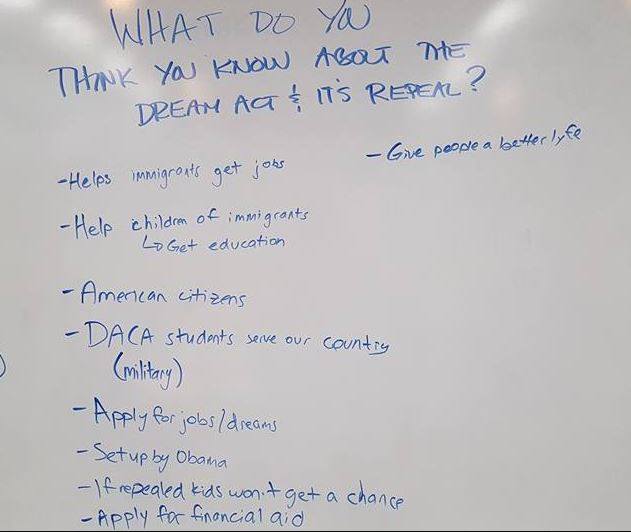 WHAT DO YOU
THINK YOU KNOW ABOUT THE
DREAM ACT & IT'S REPEAL?
- Give people a better lyfe
- Helps immigrants get jobs
- Help children of immigrants
↳ Get education
- American citizens
- DACA students serve our country
(military)
- Apply for jobs/dreams
- Set up by Obama
- If repealed kids won't get a chance
- Apply for financial aid